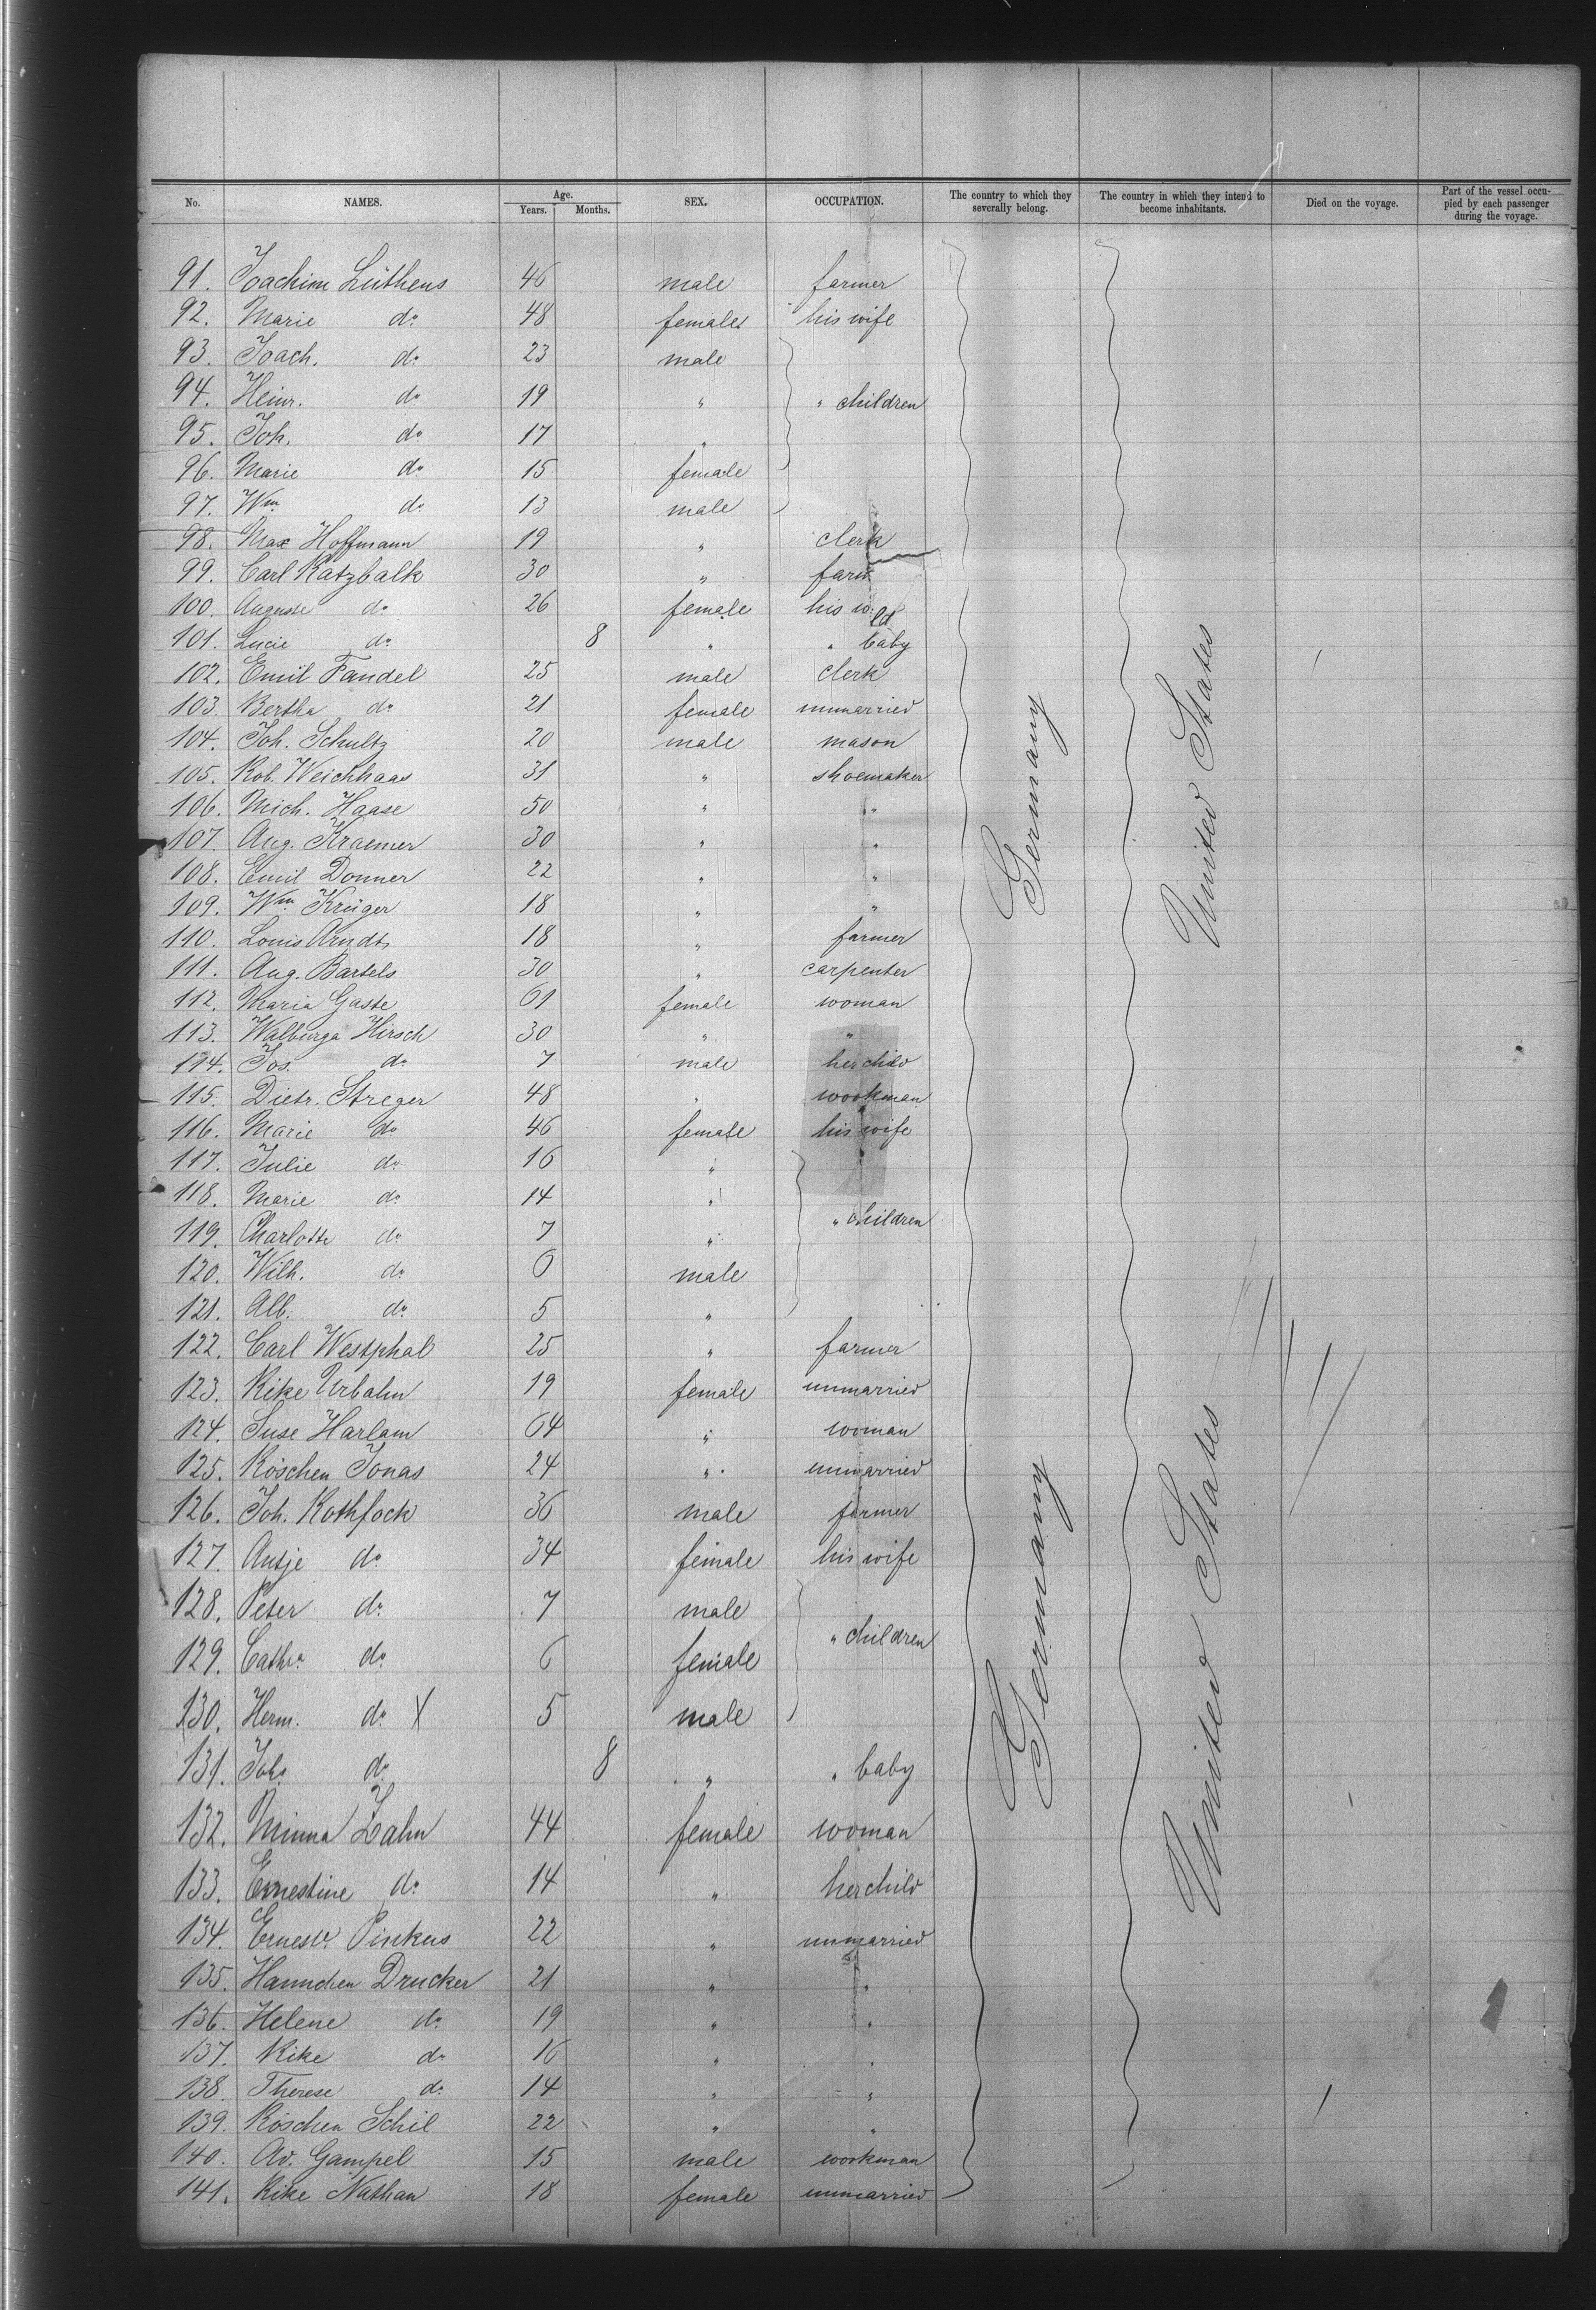 No. NAMES. Age. Years. Months. SEX. OCCUPATION. The country to which they severally belong. The country in which they intend to become inhabitants. Died on the voyage. Part of the vessel occupied by each passenger during the voyage.
91. Joachim Lüthens 46 male farmer
92. Marie do 48 female his wife
93. Joach. do 23 male
94. Heinr. do 19 " " children
95. Joh. do 17 "
96. Marie do 15 female
97. Wm do 13 male
98. Max Hoffmann 19 " clerk
99. Carl Katzbalk 30 " farm
100. Auguste do 26 female his w
101. Lucie do 8 " " baby
102. Emil Fandel 25 male clerk
103. Bertha do 21 female unmarried
104. Joh. Schultz 20 male mason
105. Rob. Weichhaas 31 " shoemaker
106. Mich. Haase 50 " "
107. Aug. Kraemer 30 " "
108. Emil Donner 22 " "
109. Wm Krüger 18 " "
110. Louis Arndt 18 " farmer
111. Aug. Bartels 30 " carpenter
112. Maria Gaste 61 female woman
113. Walburga Hirsch 30 " "
114. Jos. do 7 male her child
115. Dietr. Streger 48 " workman
116. Marie do 46 female his wife
117. Julie do 16 "
118. Marie do 14 "
119. Charlotte do 7 " " children
120. Wilh. do 6 male
121. Alb. do 5 "
122. Carl Westphal 25 " farmer
123. Rike Urbahn 19 female unmarried
124. Suse Harlam 64 " woman
125. Röschen Jonas 24 " unmarried
126. Joh. Rothfock 36 male farmer
127. Antje do 34 female his wife
128. Peter do 7 male
129. Catha do 6 female " children
130. Herm. do X 5 male
131. Johs do 8 " " baby
132. Minna Zahn 44 female woman
133. Ernestine do 14 " her child
134. Ernest. Pinkus 22 " unmarried
135. Hannchen Drucker 21 " "
136. Helene do 19 " "
137. Rike do 16 " "
138. Therese do 14 " "
139. Röschen Schil 22 " "
140. Ad. Gampel 15 male workman
141. Rike Nathan 18 female unmarried
Germany
United States
Germany
United States